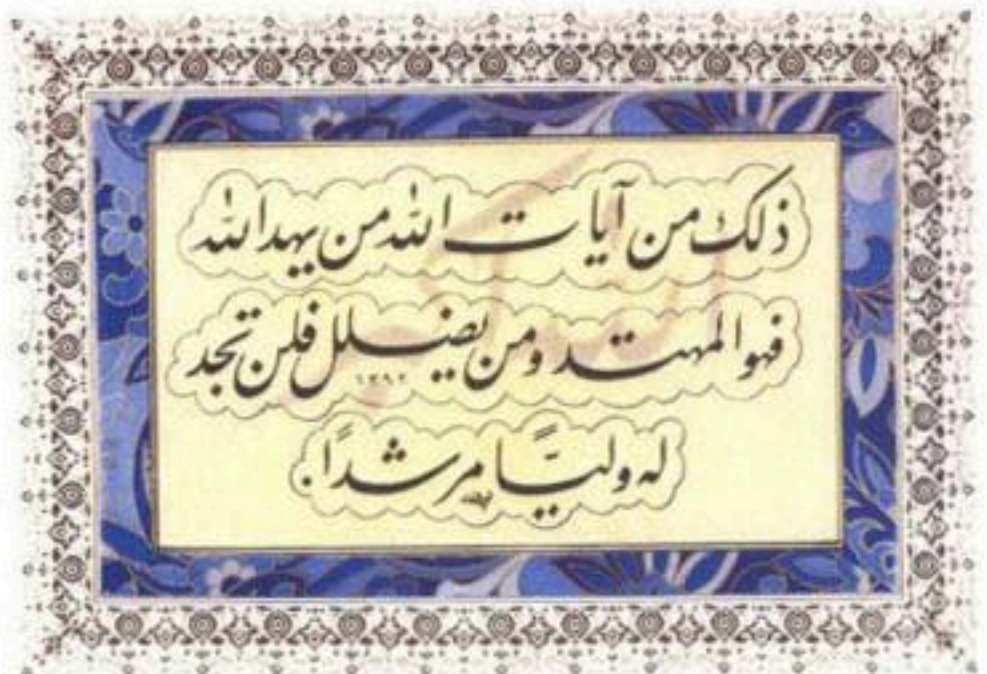 ذلك من آيات الله من يهد الله
فهو المهتد ومن يضلل فلن تجد
١٣٩٢
له وليّـا مرشداً.